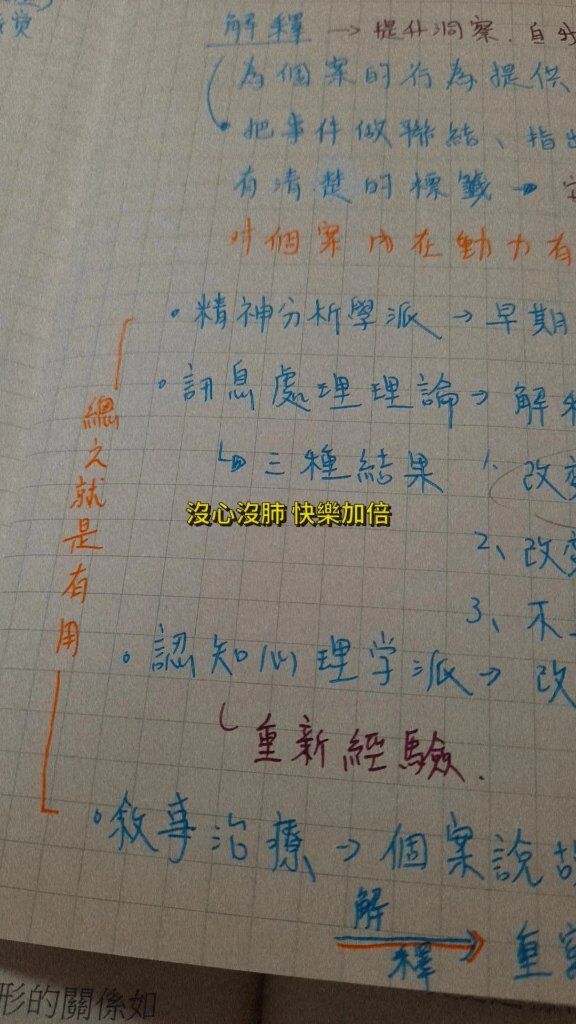 解釋 → 提升洞察、自我
為個案的行為提供
• 把事件做聯結、指出
有清楚的標籤 →
對個案內在動力有
• 精神分析學派 → 早期
• 訊息處理理論 → 解釋
↳ 三種結果 1、改變
沒心沒肺 快樂加倍
2、改變
3、不
總之就是有用
• 認知心理学派 → 改
重新經驗.
• 敘事治療 → 個案說故
解釋 → 重寫
形的關係如